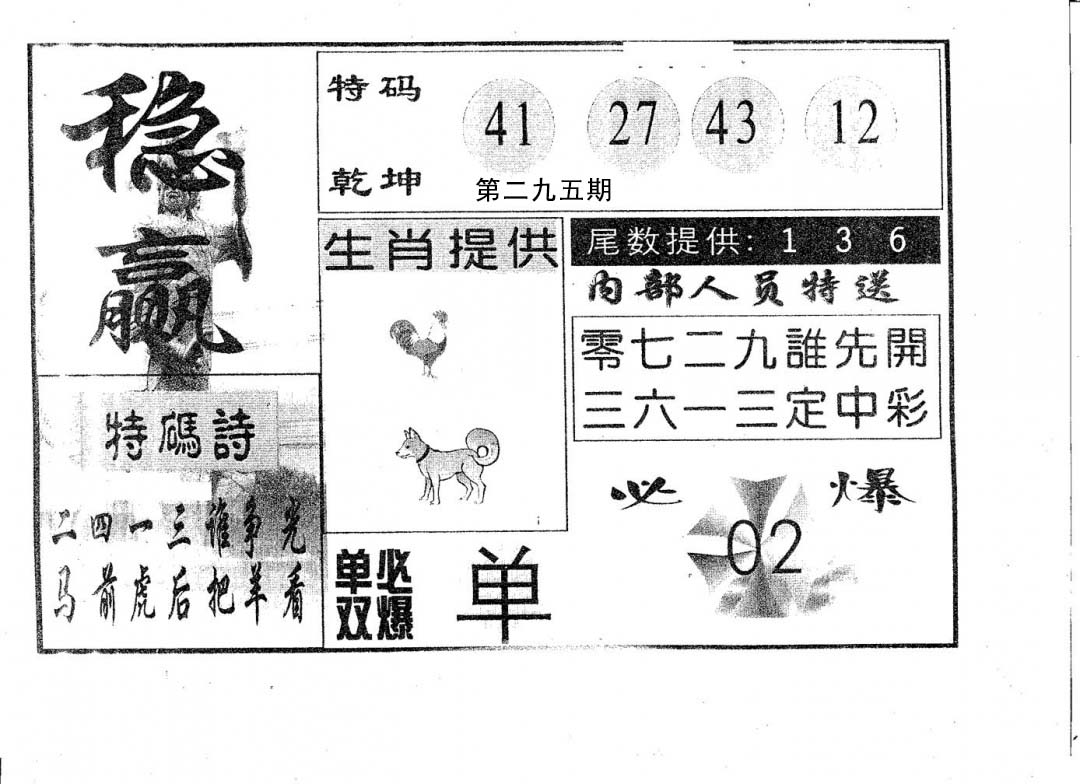 稳
赢
特码
乾坤
41 27 43 12
第二九五期
生肖提供
尾数提供: 1 3 6
内部人员特送
零七二九誰先開
三六一三定中彩
特碼詩
二四一三谁争光
马前虎后把羊看
单双
必爆
单
必爆
02